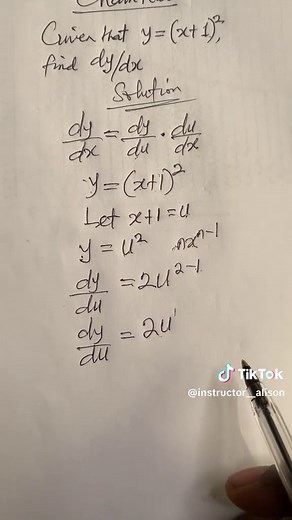 Given that y=(x+1)²,
find dy/dx
Solution
dy/dx = dy/du · du/dx
y=(x+1)²
Let x+1=u
y = u² nxⁿ⁻¹
dy/du = 2u²⁻¹
dy/du = 2u¹
TikTok
@instructor_alison